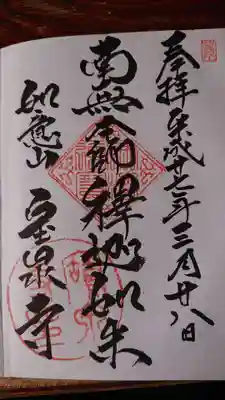 奉拝 平成廿七年三月廿八日
南無全剛釋迦如来
如意山 宝泉寺